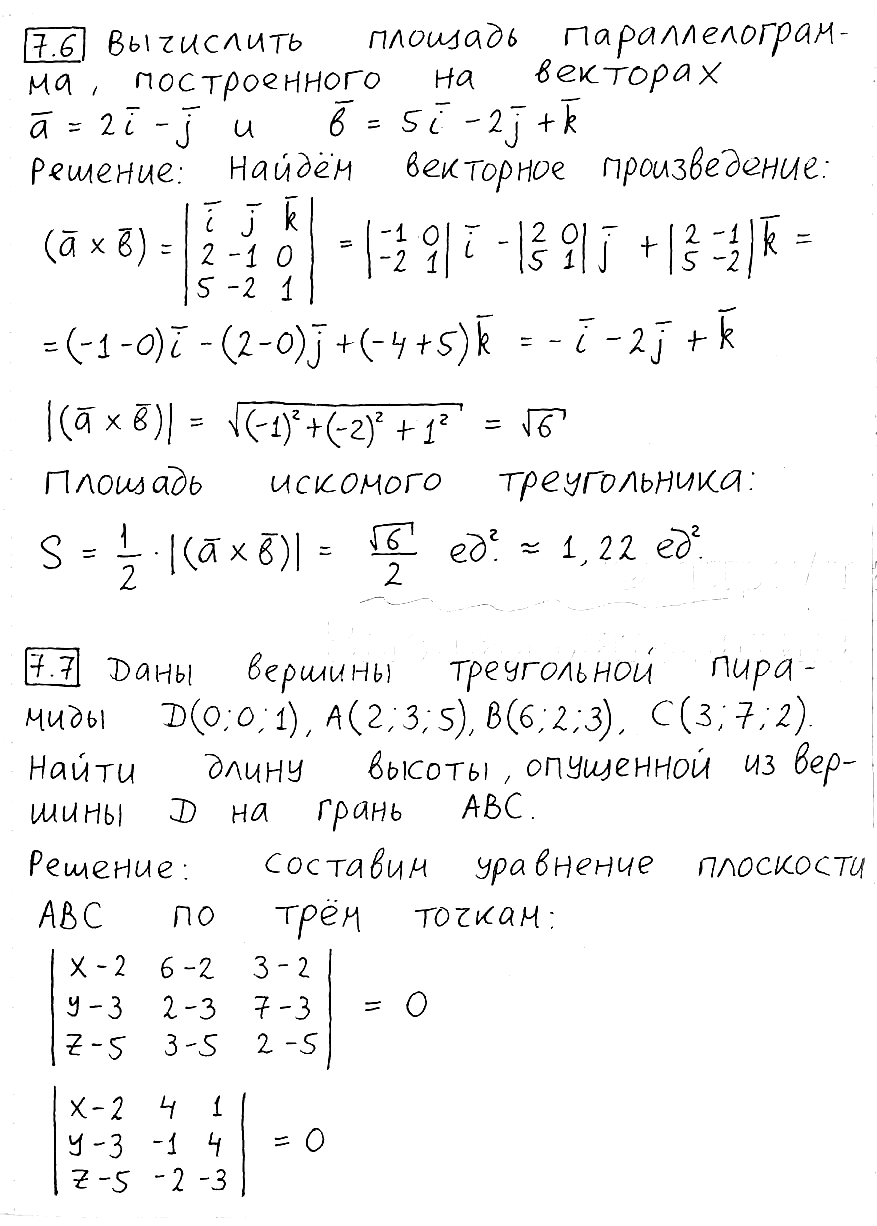 7.6 Вычислить площадь параллелограм-
ма, построенного на векторах
a̅ = 2i̅ - j̅ и b̅ = 5i̅ - 2j̅ + k̅
Решение: Найдём векторное произведение:
(a̅ × b̅) = | i̅ j̅ k̅ | = |-1 0| i̅ - |2 0| j̅ + |2 -1| k̅ =
| 2 -1 0 | |-2 1| |5 1| |5 -2|
| 5 -2 1 |
= (-1-0)i̅ - (2-0)j̅ + (-4+5)k̅ = - i̅ - 2j̅ + k̅
|(a̅ × b̅)| = √((-1)² + (-2)² + 1²) = √6
Площадь искомого треугольника:
S = 1/2 · |(a̅ × b̅)| = √6/2 ед². ≈ 1,22 ед².
7.7 Даны вершины треугольной пира-
миды D(0;0;1), A(2;3;5), B(6;2;3), C(3;7;2).
Найти длину высоты, опущенной из вер-
шины D на грань ABC.
Решение: составим уравнение плоскости
ABC по трём точкам:
| x-2 6-2 3-2 |
| y-3 2-3 7-3 | = 0
| z-5 3-5 2-5 |
| x-2 4 1 |
| y-3 -1 4 | = 0
| z-5 -2 -3 |